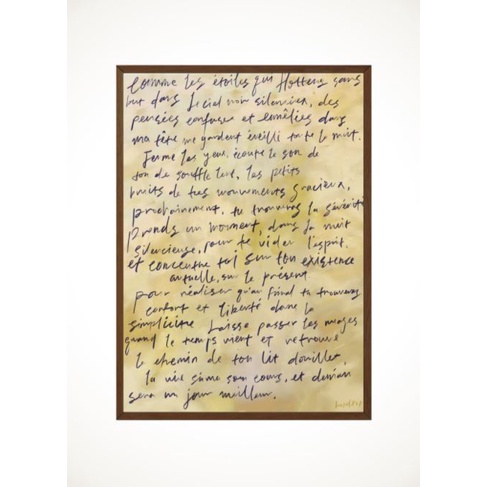 Comme les étoiles qui flottens sans
but dans le ciel noir silencieux, des
pensées confuses et emêlées dans
ma tête me gardent éveillé toute la nuit.
Ferme les yeux, écoute le son de
ton de souffle lent, les petits
bruits de tes mouvements gracieux,
prochainement, tu trouveras la sérénité
Prends un moment, dans la nuit
silencieuse, pour te vider l'esprit.
et concentre toi sur ton existence
actuelle, sur le présent
pour réaliser qu'au final tu trouveras
confort et liberté dans la
simplicité Laisse passer les nuages
quand le temps vient et retrouve
le chemin de ton lit douillet,
la vie suit son cours, et demain
sera un jour meilleur.